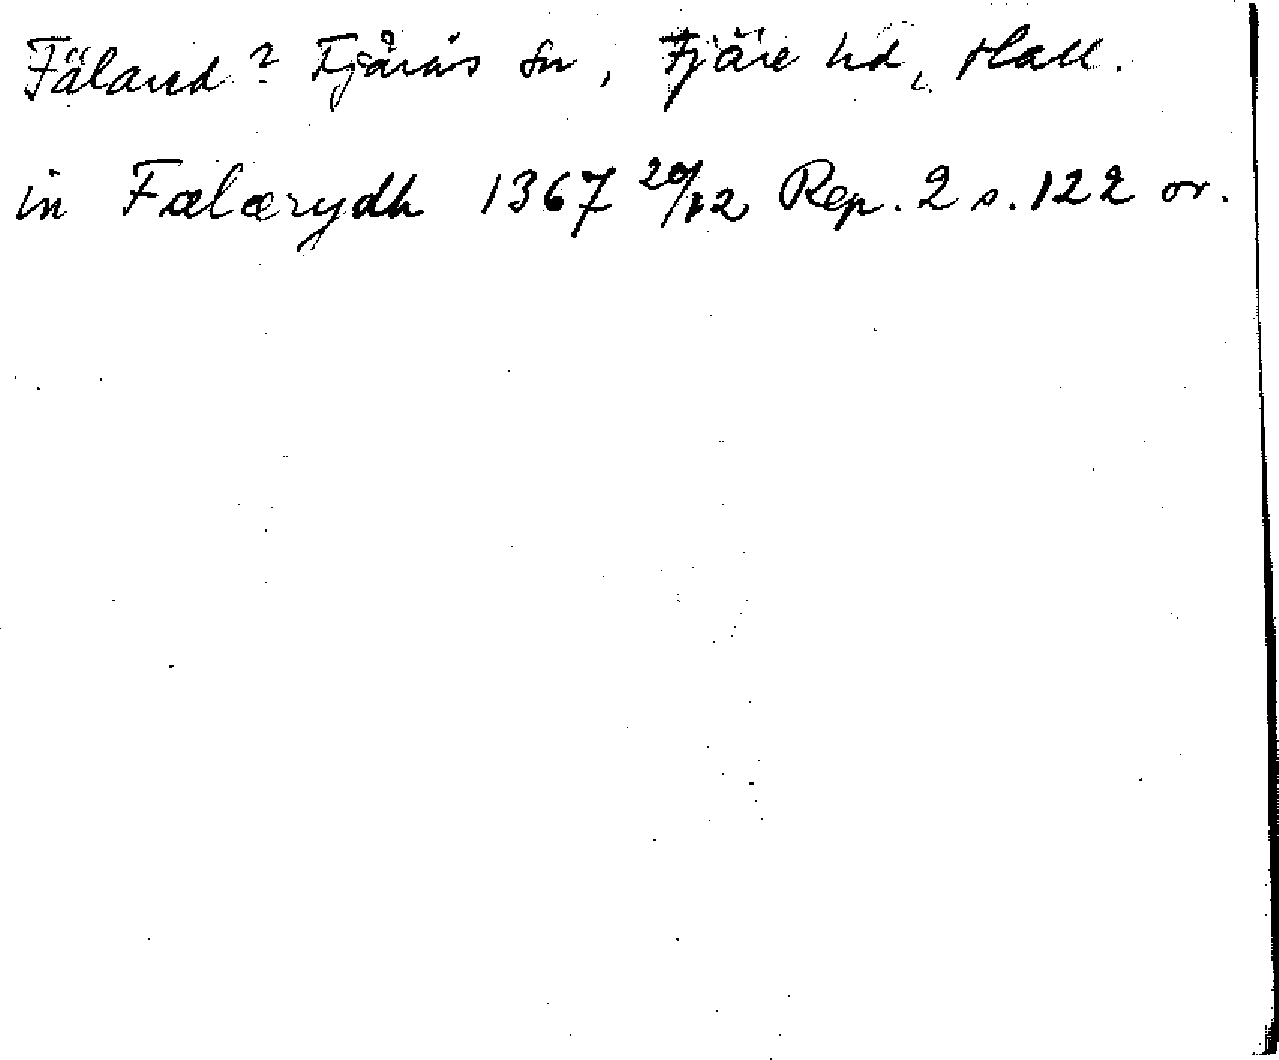 Fäland? Fjärås sn, Fjäre hd, Hall.
in Fælærydh 1367 20/12 Rep. 2 s. 122 or.